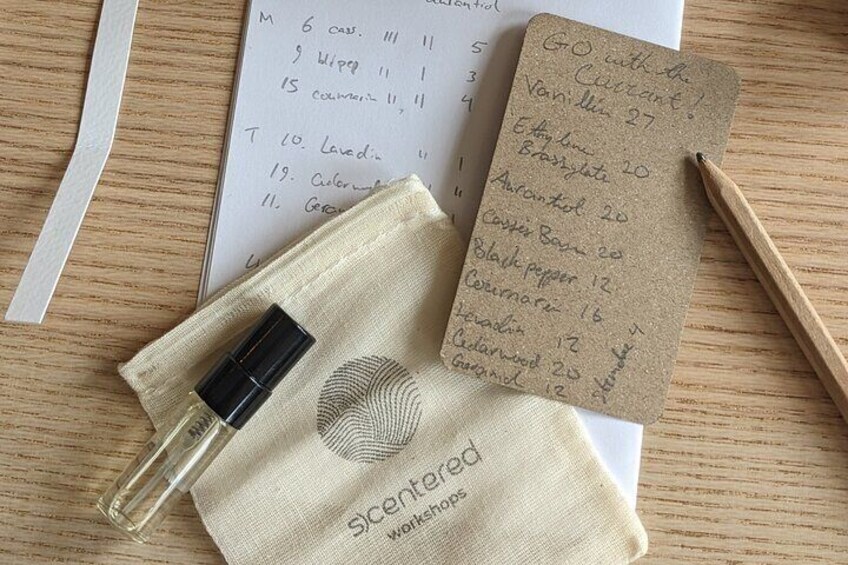 Aurantiol
M 6 cass. III II 5
9 blk pep II I 3
15 coumarin II, II 4
T 10. Lavadin II I
19. Cedarwood II
11. Geran
GO with the
Currant!
Vanillin 27
Ethylene
Brassylate 20
Aurantiol 20
Cassis Base 20
Black pepper 12
Coumarin 16
Lavadin 12
Cedarwood 20
Geraniol 12
s)centered
workshops